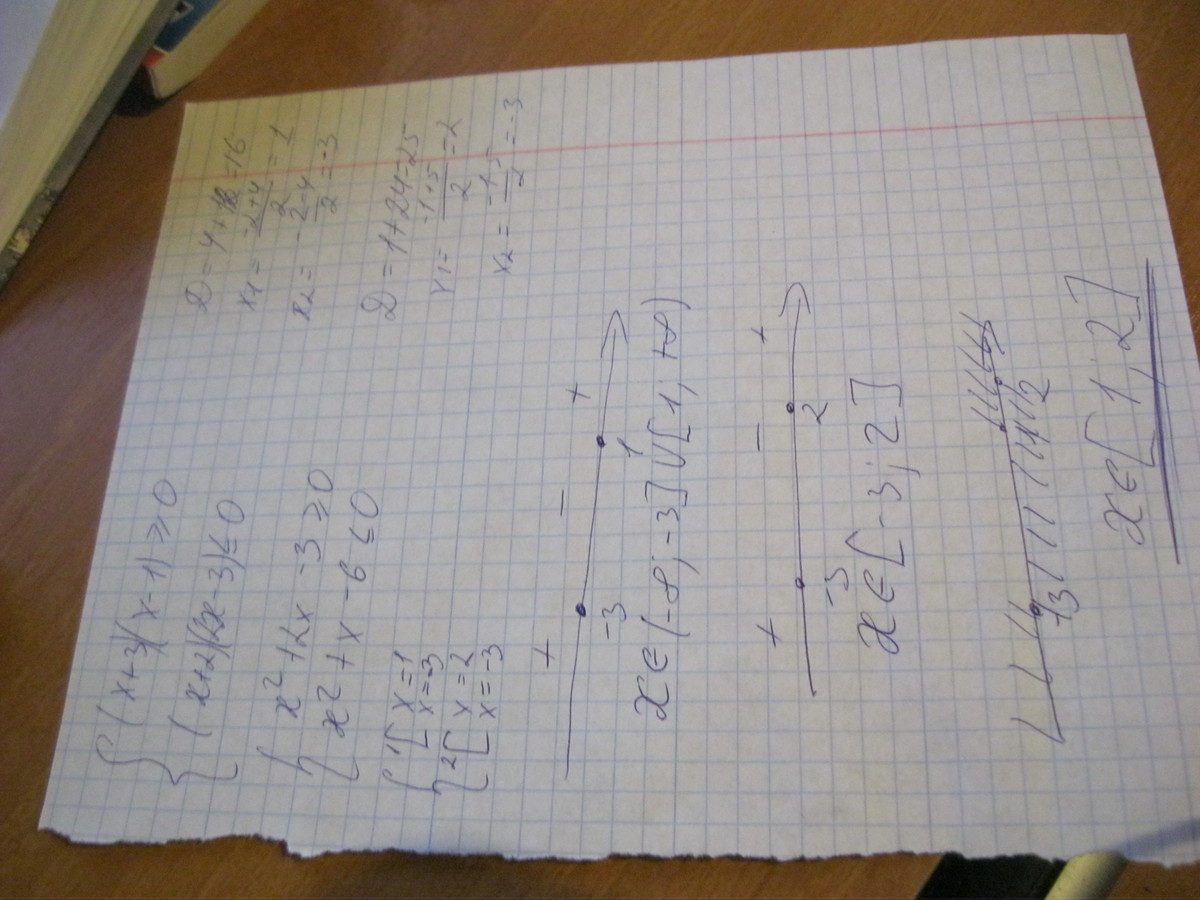 { (x+3)(x-1) ≥ 0
{ (x+2)(2x-3) ≤ 0
{ x² + 2x - 3 ≥ 0
{ x² + x - 6 ≤ 0
{ 1[ x = 1
x = -3
{ 2[ x = 2
x = -3
D = 4+12=16
x1 = -2+4/2 = 1
x2 = -2-4/2 = -3
D = 1+24=25
x1 = -1+5/2 = 2
x2 = -1-5/2 = -3
+ - +
-3 1
x ∈ (-∞; -3] ∪ [1; +∞)
+ - +
-3 2
x ∈ [-3; 2]
-3 1 2
x ∈ [1; 2]